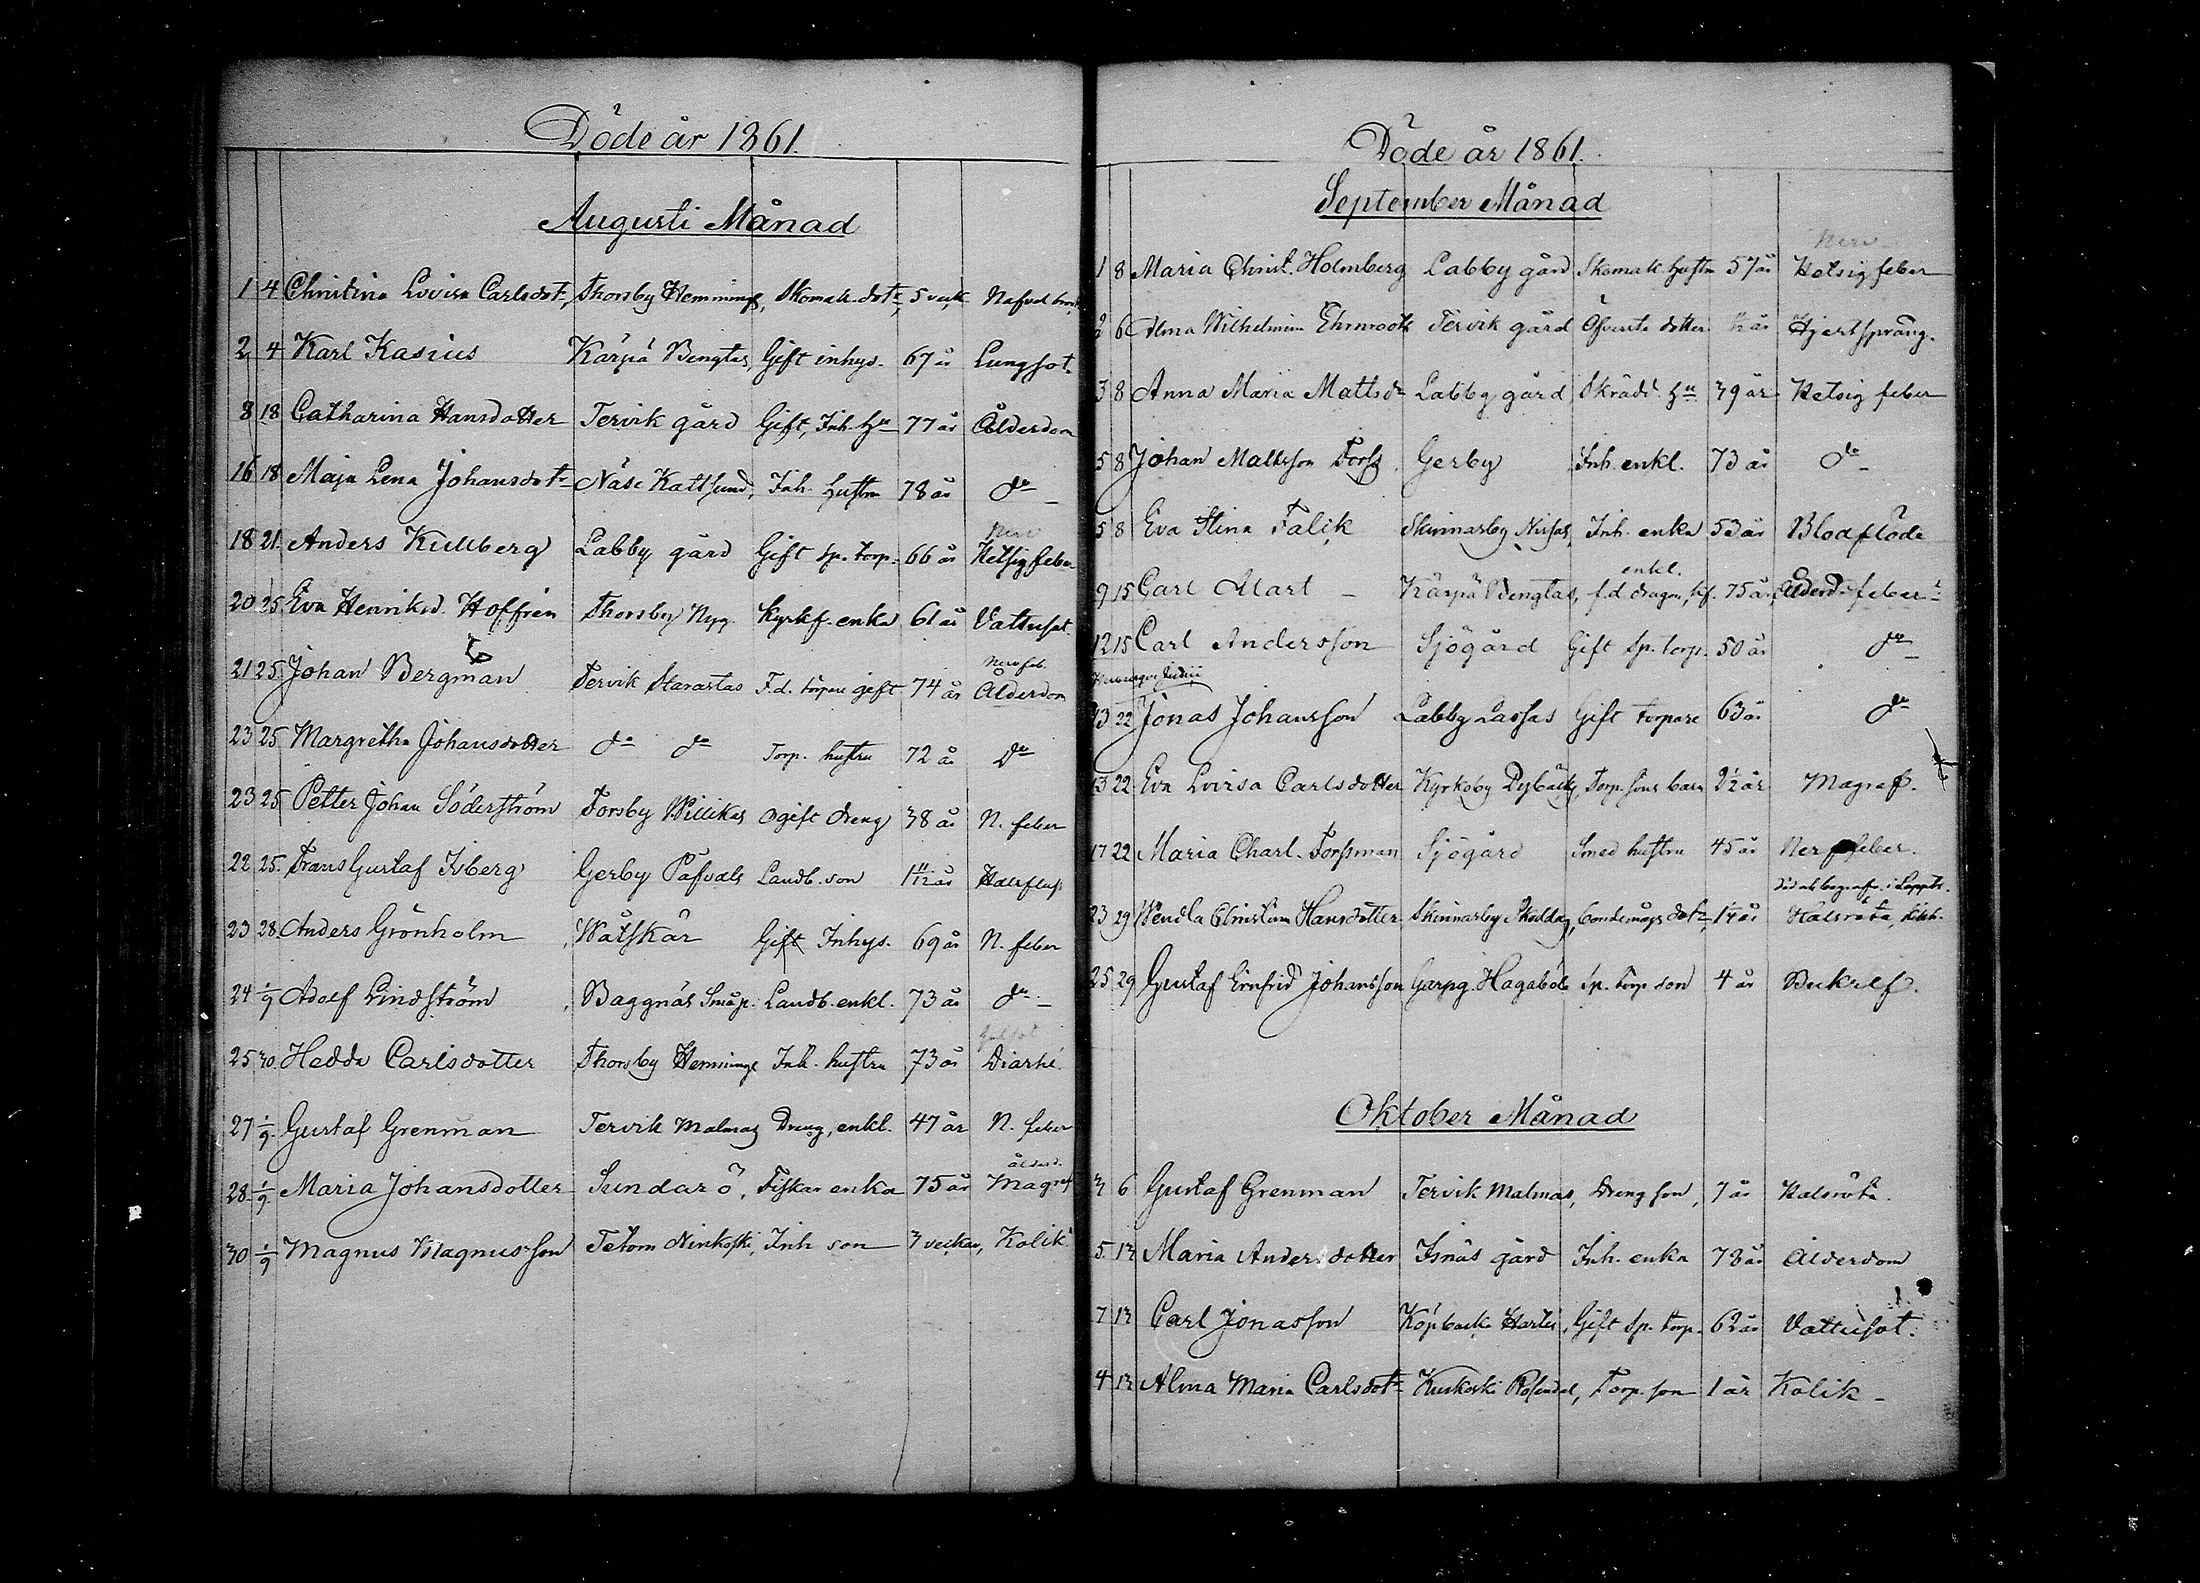 Döde år 1861.
Augusti Månad
1 4 Christina Lovisa Carlsdotr, Thorsby Hemmings, Skomak. dotr, 5 veck
2 4 Karl Kasius Kärpä Bengtas, Gift inhys. 67 år Lungsot.
8 18 Catharina Hansdotter Tervik gård Gift, Inh. hu 77 år Ålderdom
16 18 Maja Lena Johansdotr Näse Kattsund, Inh. hustru 78 år do
Nerv
18 21. Anders Kullberg Labby gård Gift sp. torp. 66 år Hetsig feber
20 25 Eva Henriksd. Hoffrén Thorsby Nyg. Kyrkf. enka 61 år Vattusot.
Nervfeb.
21 25. Johan Bergman Tervik Starastas F.d. torpare gift 74 år Ålderdom
23 25 Margretha Johansdotter do do Torp. hustru 72 år Do
23 25 Petter Johan Söderström Torsby Willikas ogift dreng 38 år N. feber
22 25. Frans Gustaf Isberg Gerby Påfvals Landb. son 1 11/12 år Halsfluss
23 28. Anders Grönholm Wåtskär Gift Inhys. 69 år N. feber
24 1/9 Adolf Lindström Baggnäs Småp. Landb. enkl. 73 år do
25 30. Hedda Carlsdotter Thorsby Hemmings Inh. hustru 73 år Diarhé.
27 1/9. Gustaf Grenman Tervik Malmas Dreng, enkl. 47 år N. feber
ålderd.
28. 1/9 Maria Johansdotter Sundarö, Fiskar enka 75 år Magref
30 1/9 Magnus Magnusson Tetom Ninkoski, Inh son 3 veckor, Kolik
Döde år 1861.
September Månad
Nerv
1 8 Maria Christ. Holmberg Labby gård Skomak. hustru 57 år Hetsig feber
2 6 Alma Wilhelmina Ehrnrooth Tervik gård Öfverste dotter 1/2 år Hjertsprång.
3 8 Anna Maria Mattsdr Labby gård Skrädd. hu 39 år Hetsig feber
5 8 Johan Mattsson Forss. Gerby Inh. enkl. 73 år do
5 8 Eva Stina Falik Skinnarby Nissas, Inh. enka 53 år Blodflöde
enkl.
9 15 Carl Alart Kärpä Bengtas, f.d. dragon, 75 år, Ålderd. feber
12 15 Carl Andersson Sjögård Gift Sp. torp. 50 år do
13 22 Jonas Johansson Labby Lassas Gift torpare 63 år do
13 22 Eva Lovisa Carlsdotter Kyrkoby Dybäck, Torp. sons barn 2 1/2 år Magref.
17 22 Maria Charl. Forssman Sjögård Smed hustru 45 år Nervfeber.
23 29 Wendla Christina Hansdotter Skinnarby Skolldag, bondemågs dotr, 1 1/4 år Halsröta,
25 29 Gustaf Ernfrid Johansson Garpg. Hagaböle Sp. torp. son 4 år Bukref.
Oktober Månad
3 6 Gustaf Grenman Tervik Malmas, Dreng son, 7 år Halsröta.
5 13 Maria Andersdotter Isnäs gård Inh. enka 78 år Ålderdom
7 13 Carl Jonasson Köpbacka Hartes, Gift Sp. torp. 62 år Vattusot.
4 13 Alma Maria Carlsdotr Kuskoski Rosendal, Torp. son 1 år Kolik